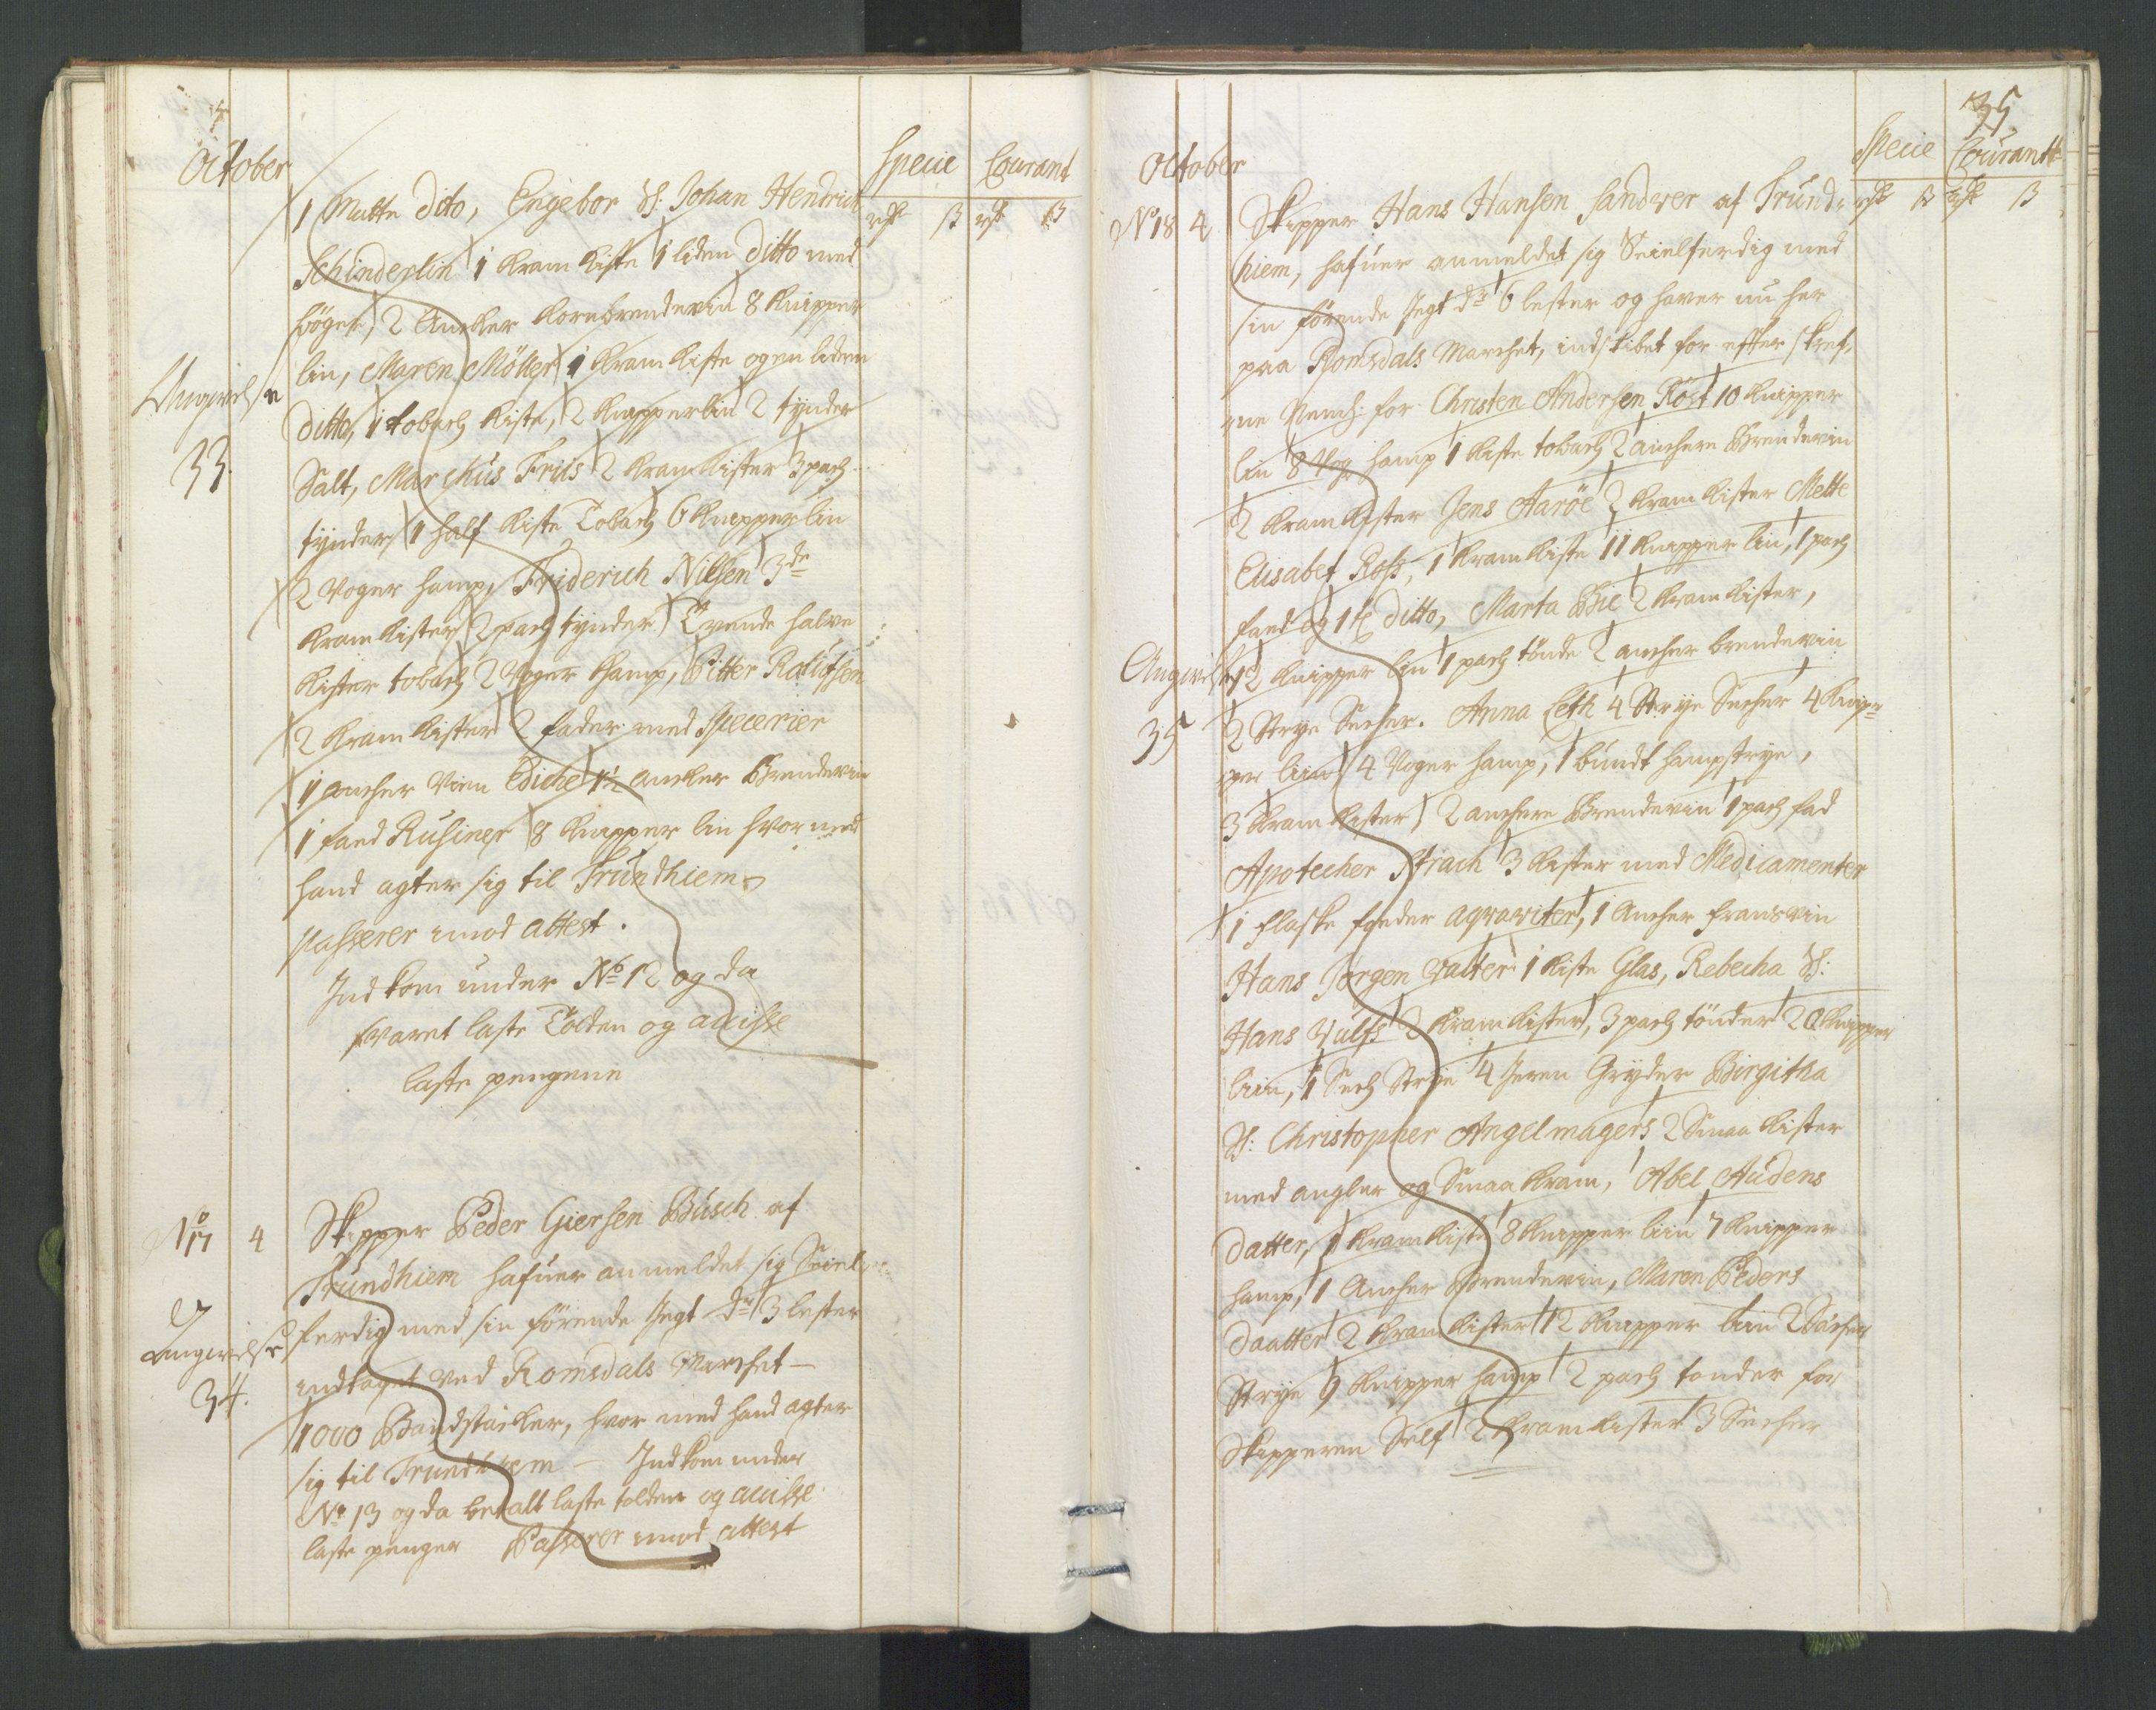 October
Specie Courant
rdr ß rdr ß
1 Matte dito, Engebor S: Johan Hendrich
Schinderlin 1 kram kiste 1 liden ditto med
bøger, 2 Ancker kornbrendevin 8 knipper
lin, Maren Möller 1 kram kiste og en liden
Angivelse
ditto, 1 tobach kiste, 2 knipper lin 2 tynder
33.
Salt, Marchus Friis 2 kram kister 3 pach
tynder 1 half kiste Tobach 6 knipper lin
2 Voger hamp, Friderich Nilsen 3de
kram kister 2 pach tynder Tvende halve
kister tobach 2 Voger hamp, Pitter
2 kram kister 2 fader med Specerier
1 ancher Viin Ediche 1½ ancker Brendevin
1 faed Rusiner 8 knipper lin hvor med
hand agter sig til Trundhiem
passerer imod attest.
Indkom under No 12 og da
svaret laste Tolden og accisse
laste pengene
No 17 4 Skipper Peder Giersen Busch af
Trundhiem hafuer anmeldet sig Seiel
ferdig med sin førende Jegt dr 3 lester
Angivelse
indtaget ved Romsdals Marchet
34.
1000 Bandstacker, hvor med hand agter
sig til Trundhiem - Indkom under
No 13 og da betalt laste tolden og accisse
laste penger Passerer imod attest
35
October
Specie Courant
rdr ß rdr ß
No 18 4 Skipper Hans Hansen Sandver af Trund
hiem, hafuer anmeldet sig Seielferdig med
sin førende Jegt dr 6 lester og haver nu her
paa Romsdals Marchet, indskibet for efter skref
ne Nemh: for Christen Andersen Röst 10 knipper
lin 8 Vog hamp 1 kiste tobach 2 anchere Brendevin
2 kram kister Jens Aaröe 2 kram kister Mette
Elisabet Rofs, 1 kram kiste 11 knipper lin, 1 pach
faed og 1 ditto, Marta Bie 2 kram kister,
Angivelse
12 knipper lin 1 pach tönde 2 ancher brendevin
35
2 Strye Secher. Anna Leth 4 Strye Secher 4 knip
per liin 4 Voger hamp, 1 bundt hampstrye,
3 kram kister 2 anchere Brendevin 1 pach fad
Apotecher Strach 3 kister med Medicamenter
1 flaske foeder aqvaviter, 1 Ancher fransvin
Hans Jörgen Valter 1 kiste Glas, Rebecha S:
Hans Vulfs 2 kram kister, 3 pach tönder 20 knipper
liin, 1 Sech Strye 4 Jeren Gryder Birgitha
S: Christopher Angelmagers 2 Smaa kister
med angler og Smaa kram, Abel Audens
datter, 1 kram kiste 8 knipper liin 7 knipper
hamp, 1 Ancher Brendevin, Maren Peders
daatter 2 kram kister 12 knipper liin 2 Secher
Strye 9 knipper hamp 2 pach tonder for
Skipperen Self 2 kram kister 3 Secher